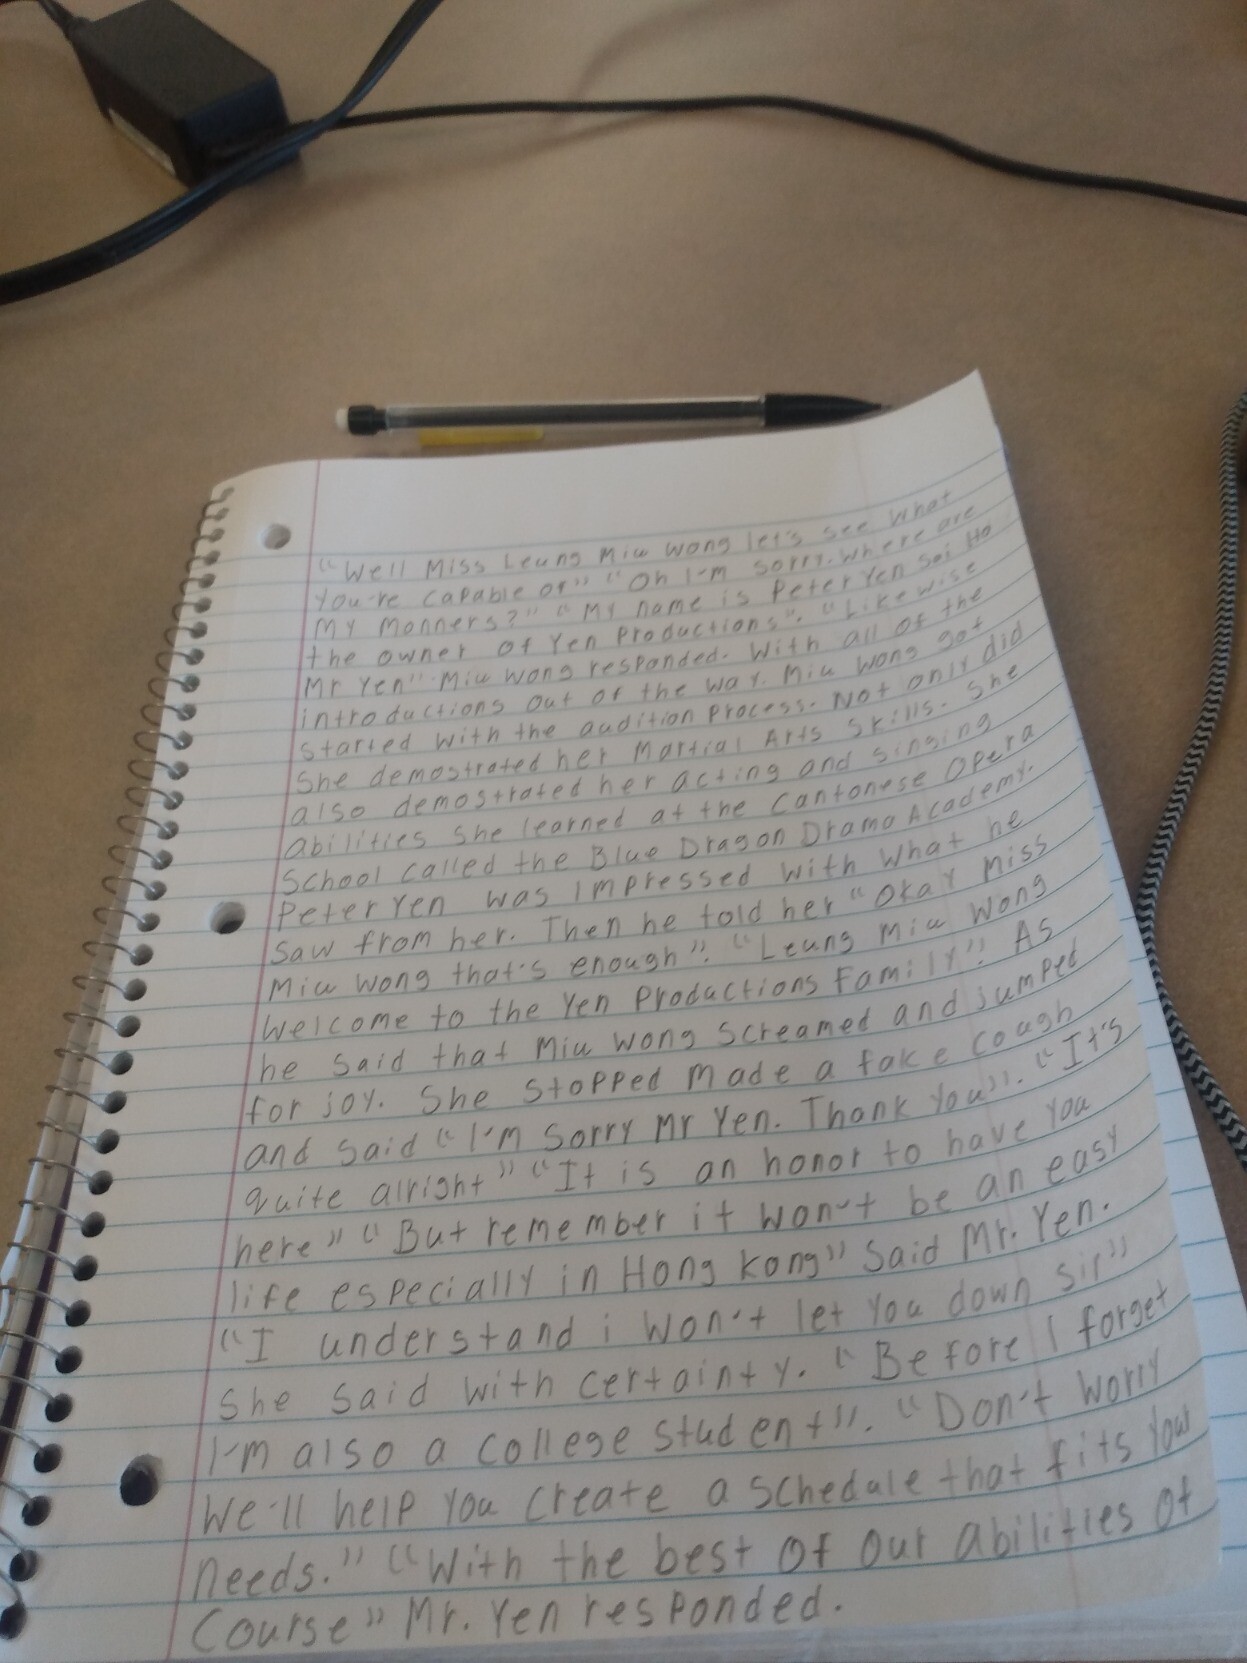 "Well Miss Leung Miu Wong let's see what
you're capable of" "Oh I'm sorry. Where are
my manners?" "My name is Peter Yen Sai Ho
the owner of Yen Productions". "Likewise
Mr Yen" Miu Wong responded. With all of the
introductions out of the way. Miu Wong got
started with the audition process. Not only did
she demostrated her Martial Arts skills. She
also demostrated her acting and singing
abilities she learned at the Cantonese Opera
School called the Blue Dragon Drama Academy.
Peter Yen was impressed with what he
saw from her. Then he told her "Okay Miss
Miu Wong that's enough". "Leung Miu Wong
Welcome to the Yen Productions Family". As
he said that Miu Wong screamed and jumped
for joy. She stopped made a fake cough
and said "I'm sorry Mr Yen. Thank you". "It's
quite alright" "It is an honor to have you
here" "But remember it won't be an easy
life especially in Hong Kong" said Mr. Yen.
"I understand i won't let you down sir"
she said with certainty. "Before I forget
I'm also a college student". "Don't worry
We'll help you create a schedule that fits your
needs." "With the best of our abilities of
course" Mr. Yen responded.